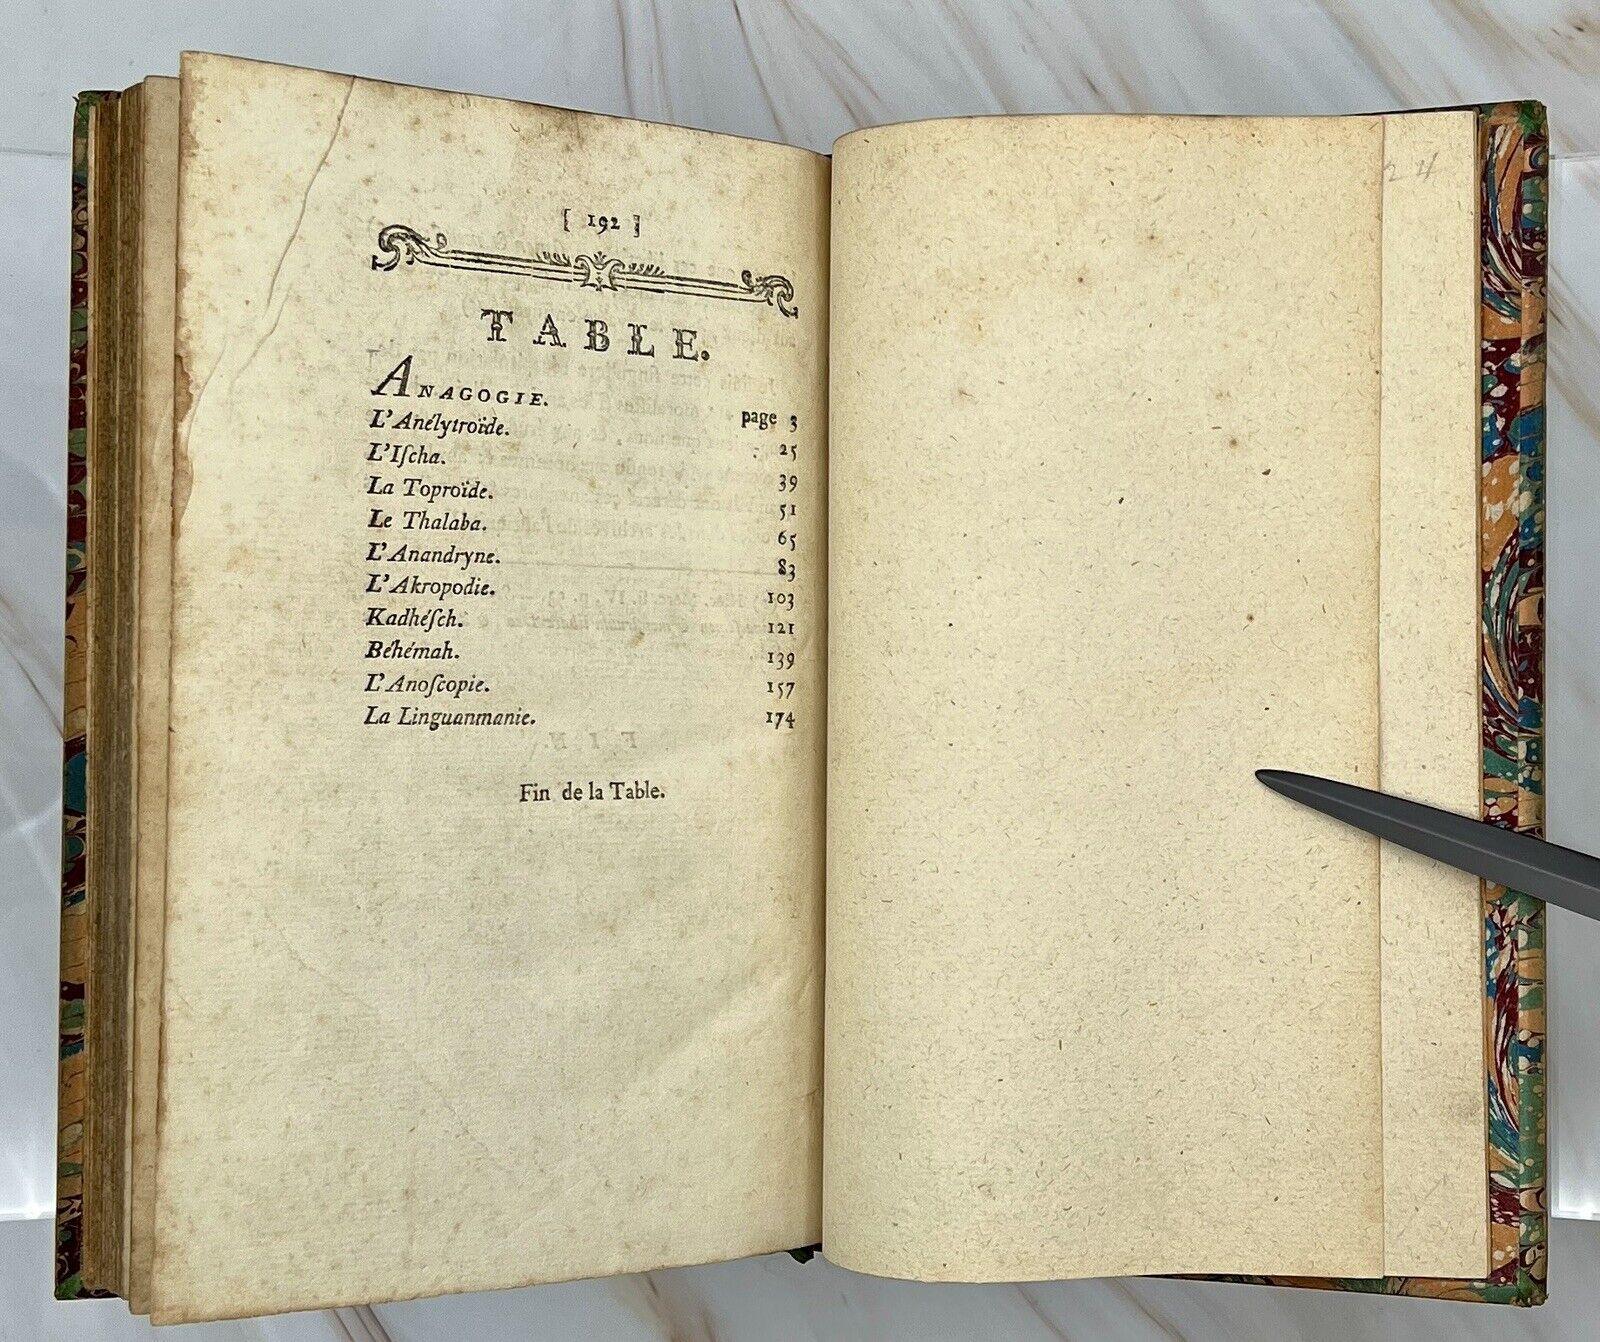 [ 192 ]
TABLE.
ANAGOGIE. page 3
L'Anélytroïde. 25
L'Iſcha. 39
La Toproïde. 51
Le Thalaba. 65
L'Anandryne. 83
L'Akropodie. 103
Kadhéſch. 121
Béhémah. 139
L'Anoſcopie. 157
La Linguanmanie. 174
Fin de la Table.
24